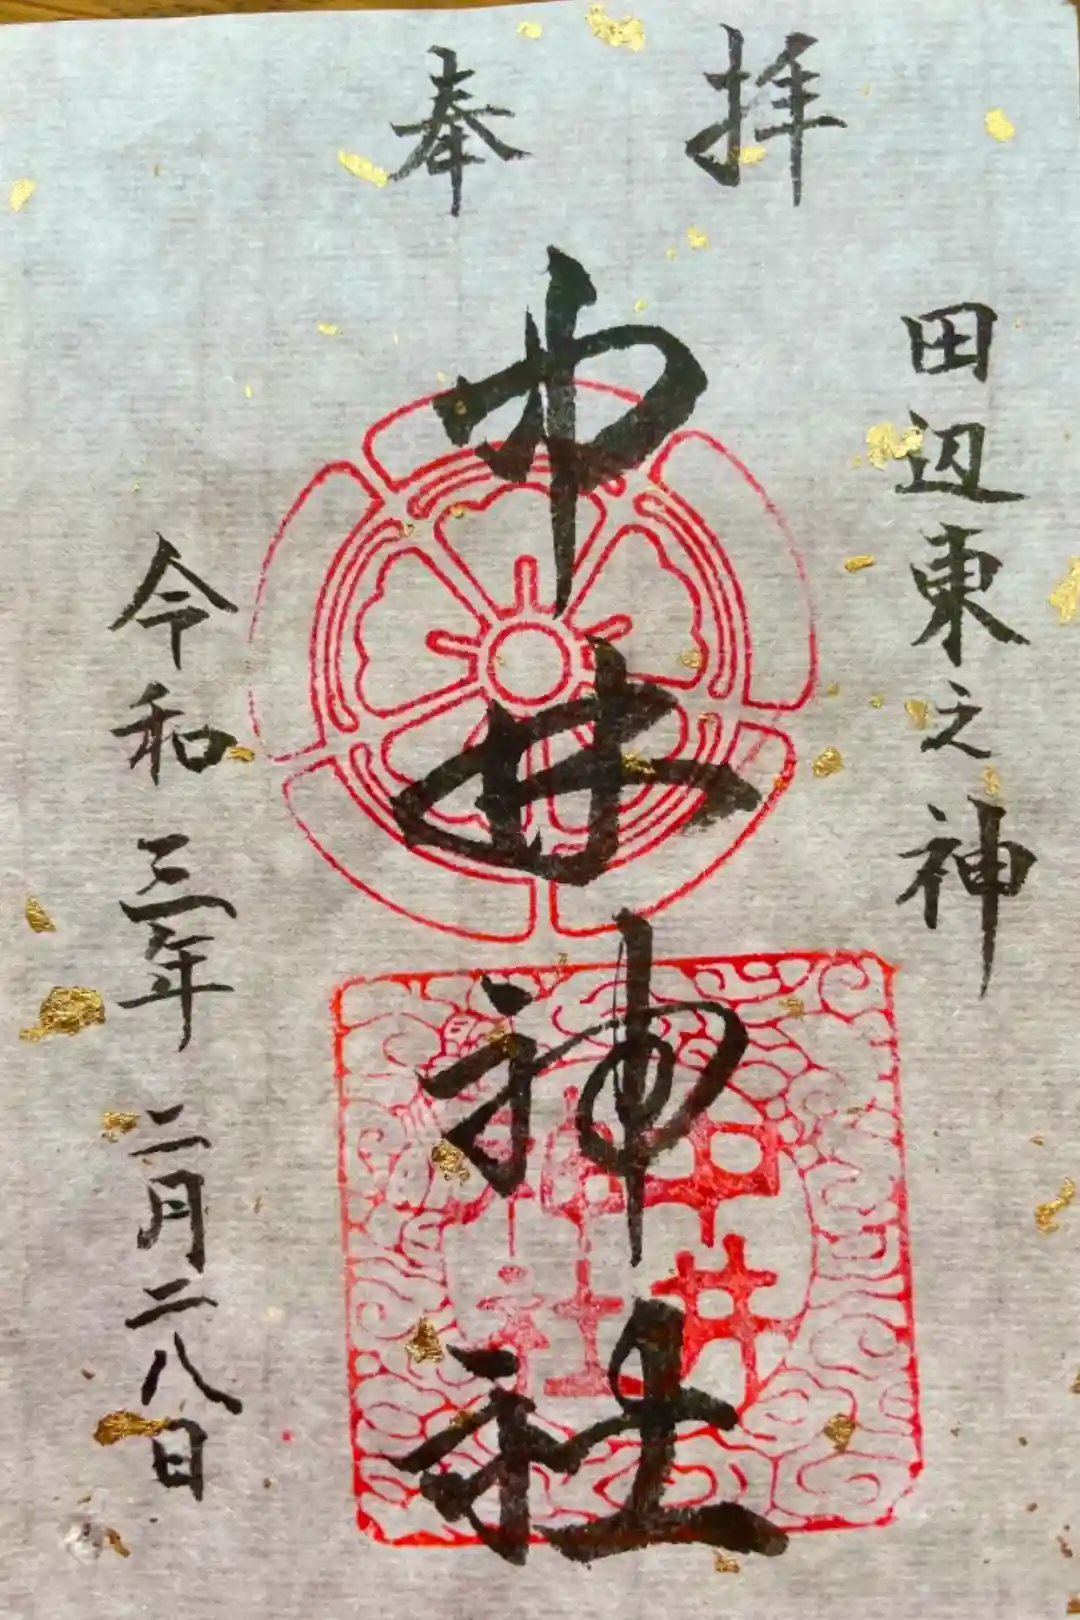 奉拝
田辺東之神
中井神社
中井
神社
令和三年二月二八日